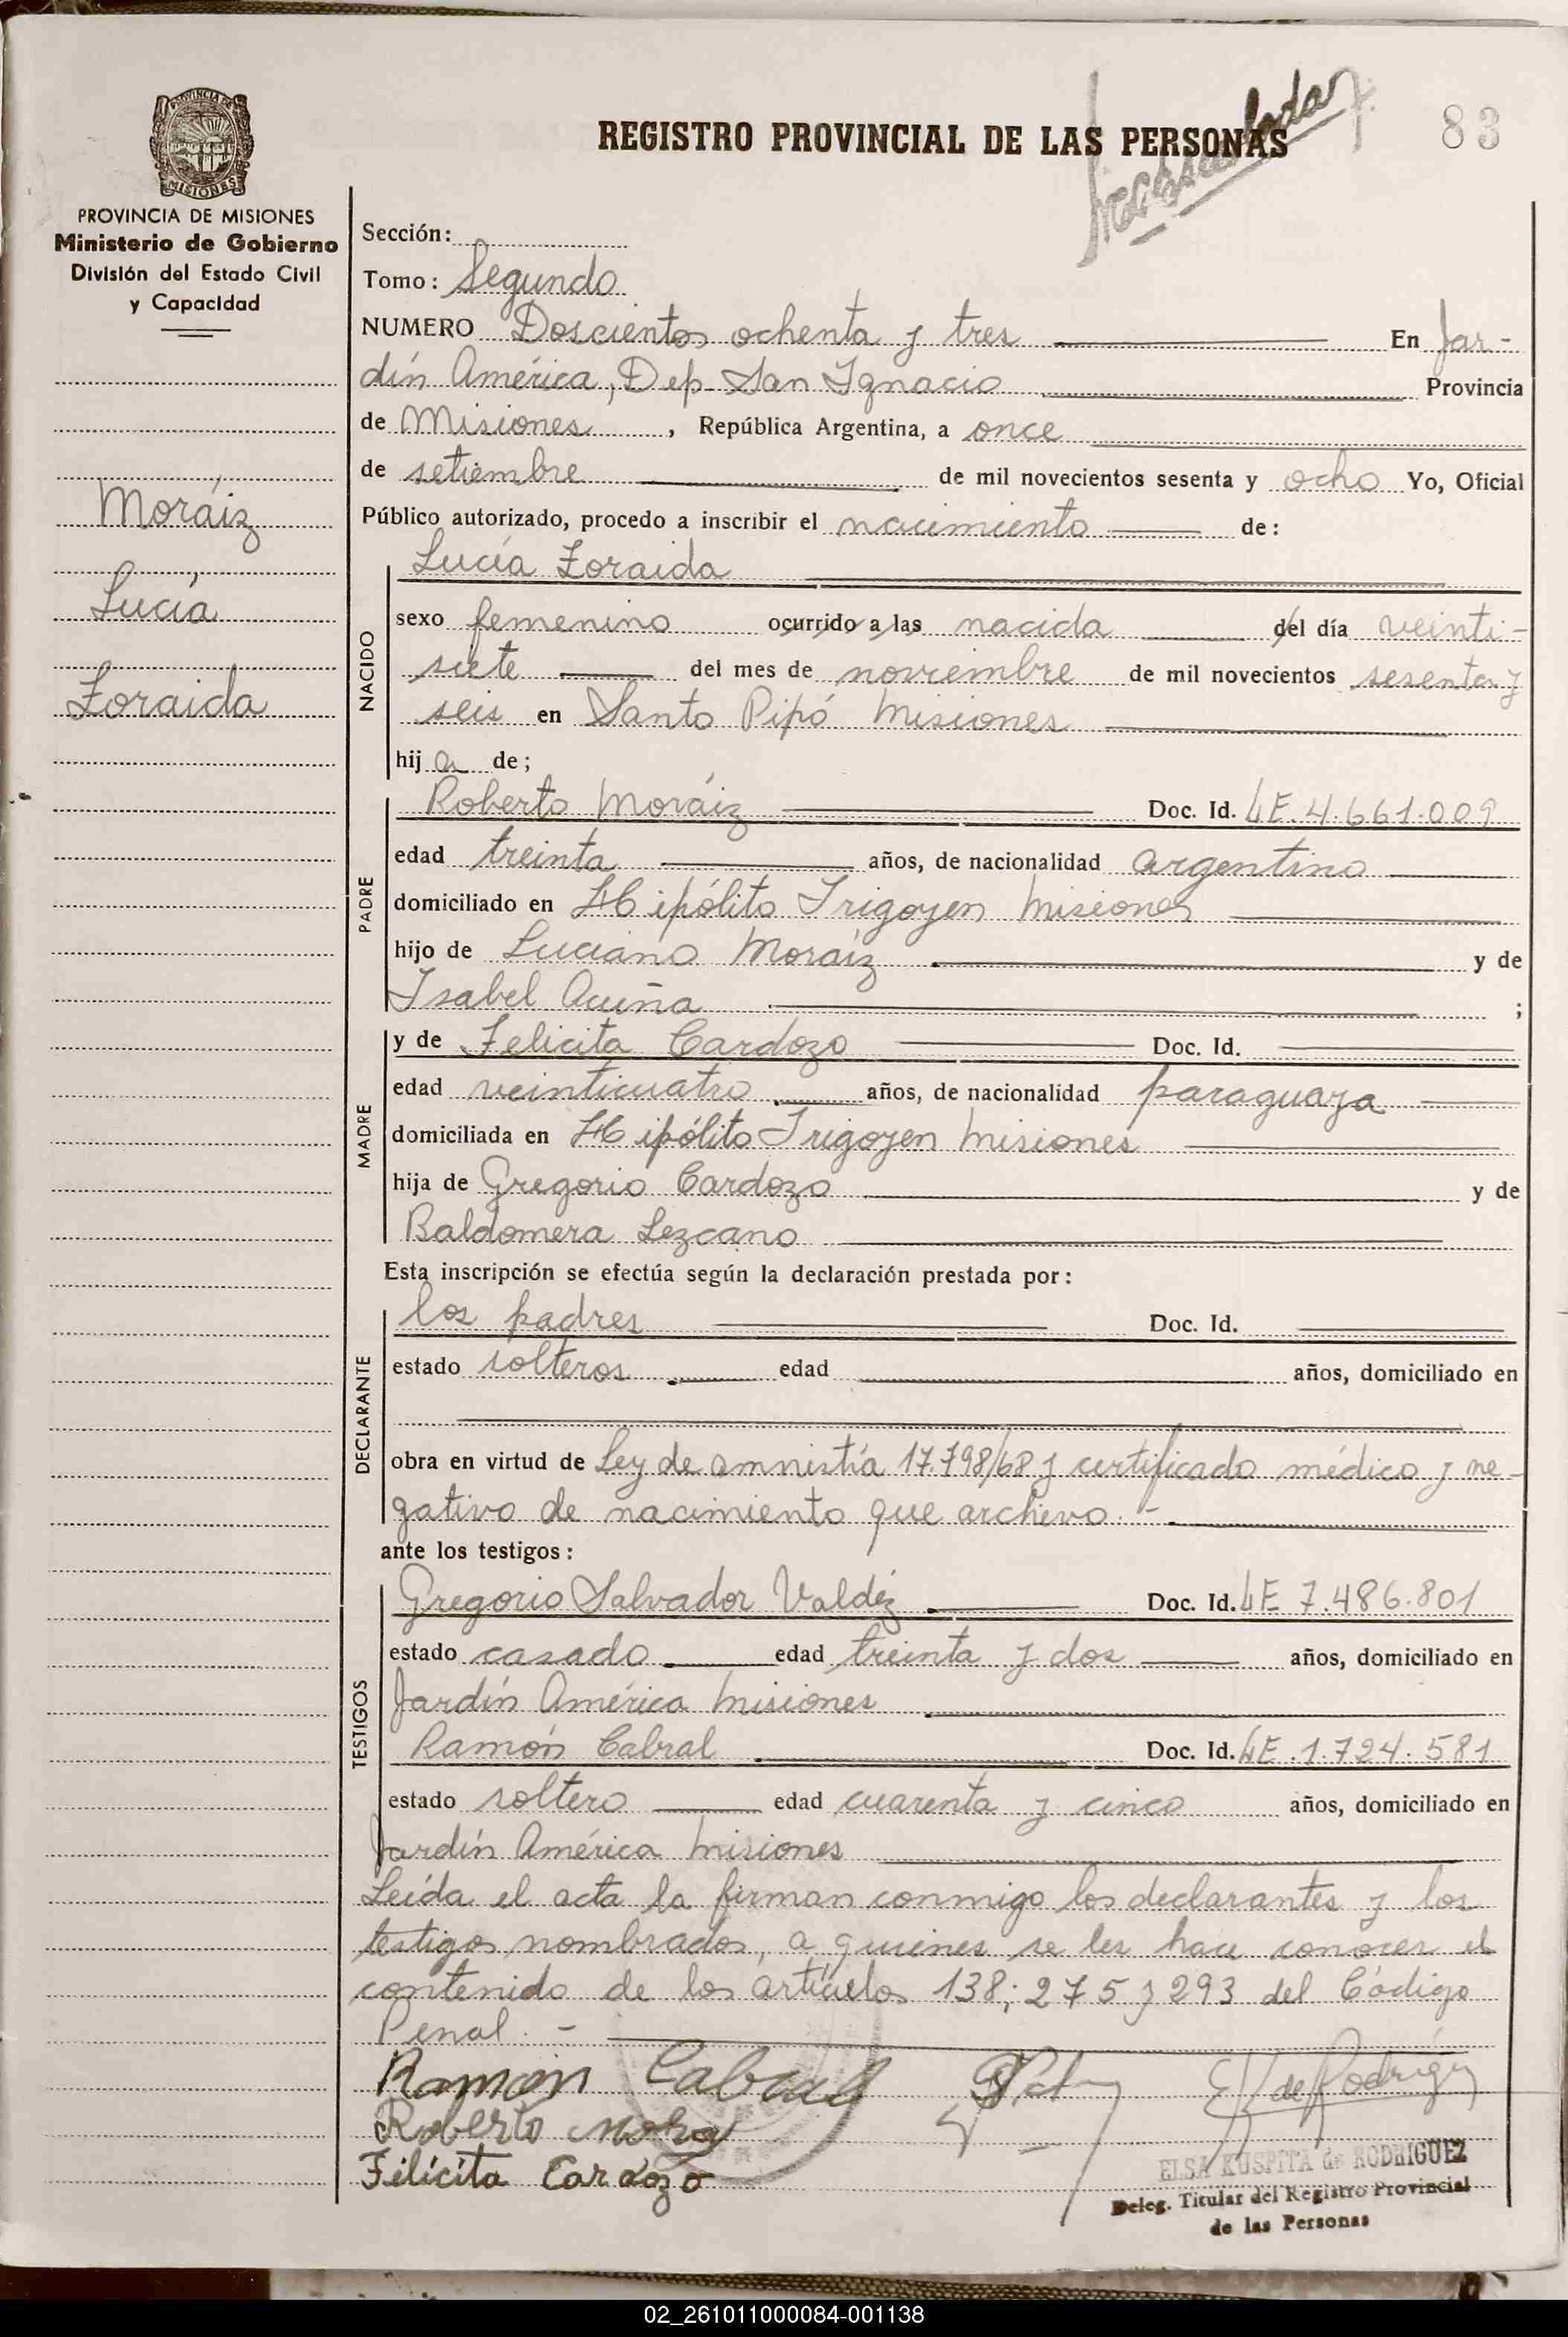 REGISTRO PROVINCIAL DE LAS PERSONAS
83
PROVINCIA DE MISIONES
Ministerio de Gobierno
División del Estado Civil
y Capacidad
Moráiz
Lucía
Zoraida
Sección:
Tomo: Segundo
NUMERO Doscientos ochenta y tres En Jar-
dín América, Dep. San Ignacio Provincia
de Misiones, República Argentina, a once
de setiembre de mil novecientos sesenta y ocho Yo, Oficial
Público autorizado, procedo a inscribir el nacimiento de:
NACIDO
Lucía Zoraida
sexo femenino ocurrido a las nacida del día veinti-
siete del mes de noviembre de mil novecientos sesenta y
seis en Santo Pipó Misiones
hij a de;
PADRE
Roberto Moráiz Doc. Id. LE.4.661.009
edad treinta años, de nacionalidad argentino
domiciliado en Hipólito Irigoyen Misiones
hijo de Luciano Moráiz y de
Isabel Acuña ;
MADRE
y de Felicita Cardozo Doc. Id.
edad veinticuatro años, de nacionalidad paraguaya
domiciliada en Hipólito Irigoyen Misiones
hija de Gregorio Cardozo y de
Baldomera Lezcano
Esta inscripción se efectúa según la declaración prestada por:
DECLARANTE
los padres Doc. Id.
estado solteros edad años, domiciliado en
obra en virtud de Ley de amnistía 17.798/68 y certificado médico y ne-
gativo de nacimiento que archivo.-
ante los testigos:
TESTIGOS
Gregorio Salvador Valdéz Doc. Id. LE 7.486.801
estado casado edad treinta y dos años, domiciliado en
Jardín América Misiones
Ramón Cabral Doc. Id. LE.1.724.581
estado soltero edad cuarenta y cinco años, domiciliado en
Jardín América Misiones
Leída el acta la firman conmigo los declarantes y los
testigos nombrados, a quienes se les hace conocer el
contenido de los artículos 138; 275 y 293 del Código
Penal.-
Ramón Cabral
de Rodríguez
Roberto
Filícita Cardozo
ELSA KUSPITA de RODRIGUEZ
Deleg. Titular del Registro Provincial
de las Personas
02_261011000084-001138